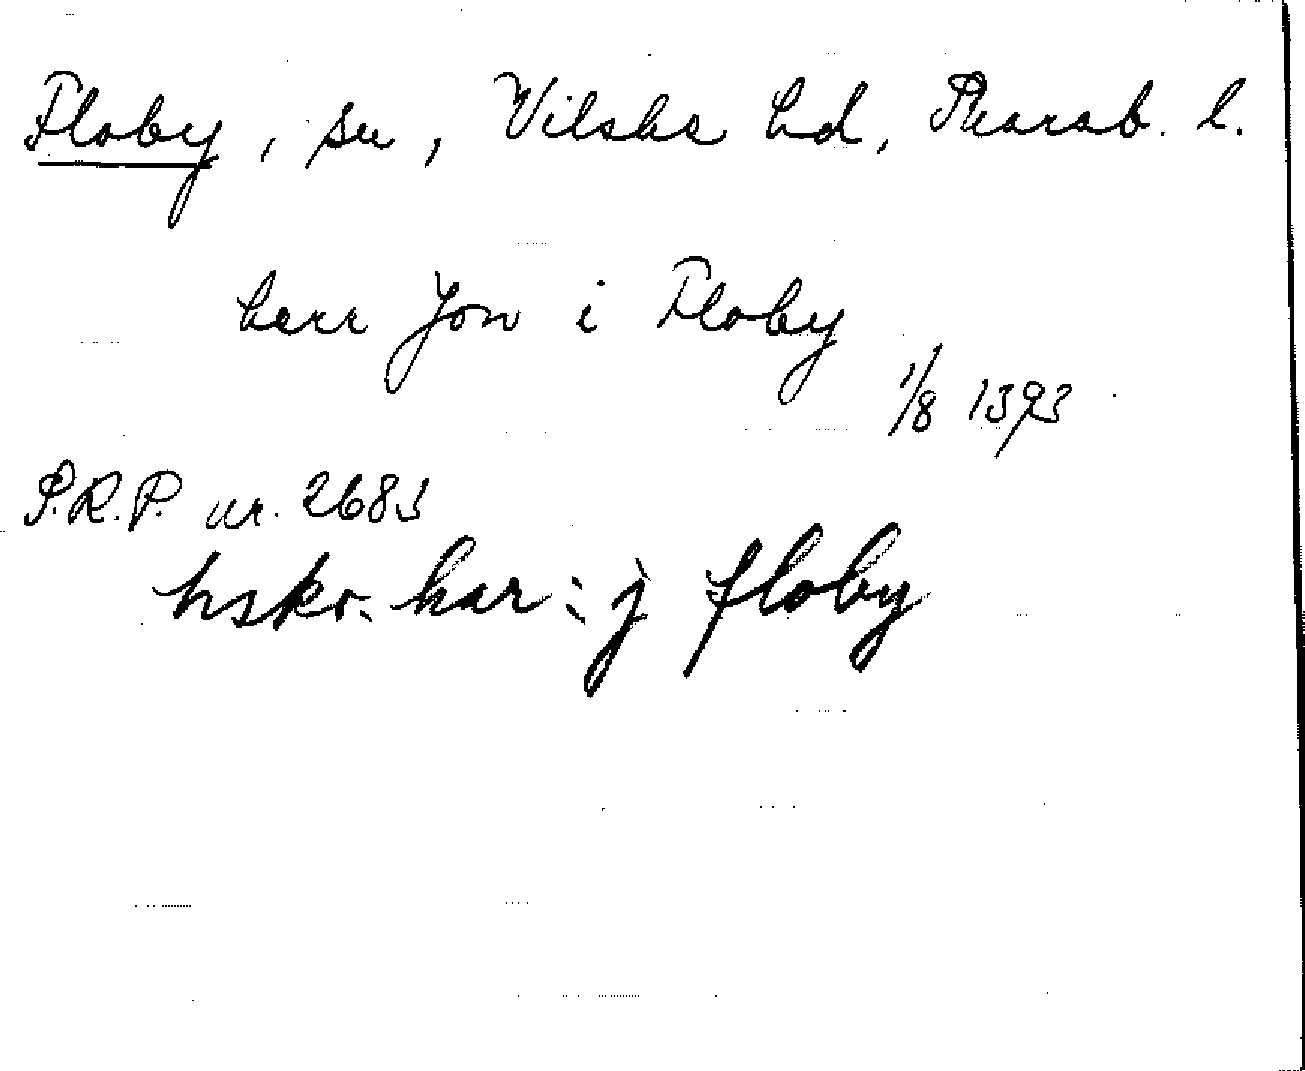 Floby, sn, Vilske hd, Skarab. l.
herr Jon i Floby
1/8 1393
P.R.P. nr. 2683
hskr. har: j floby